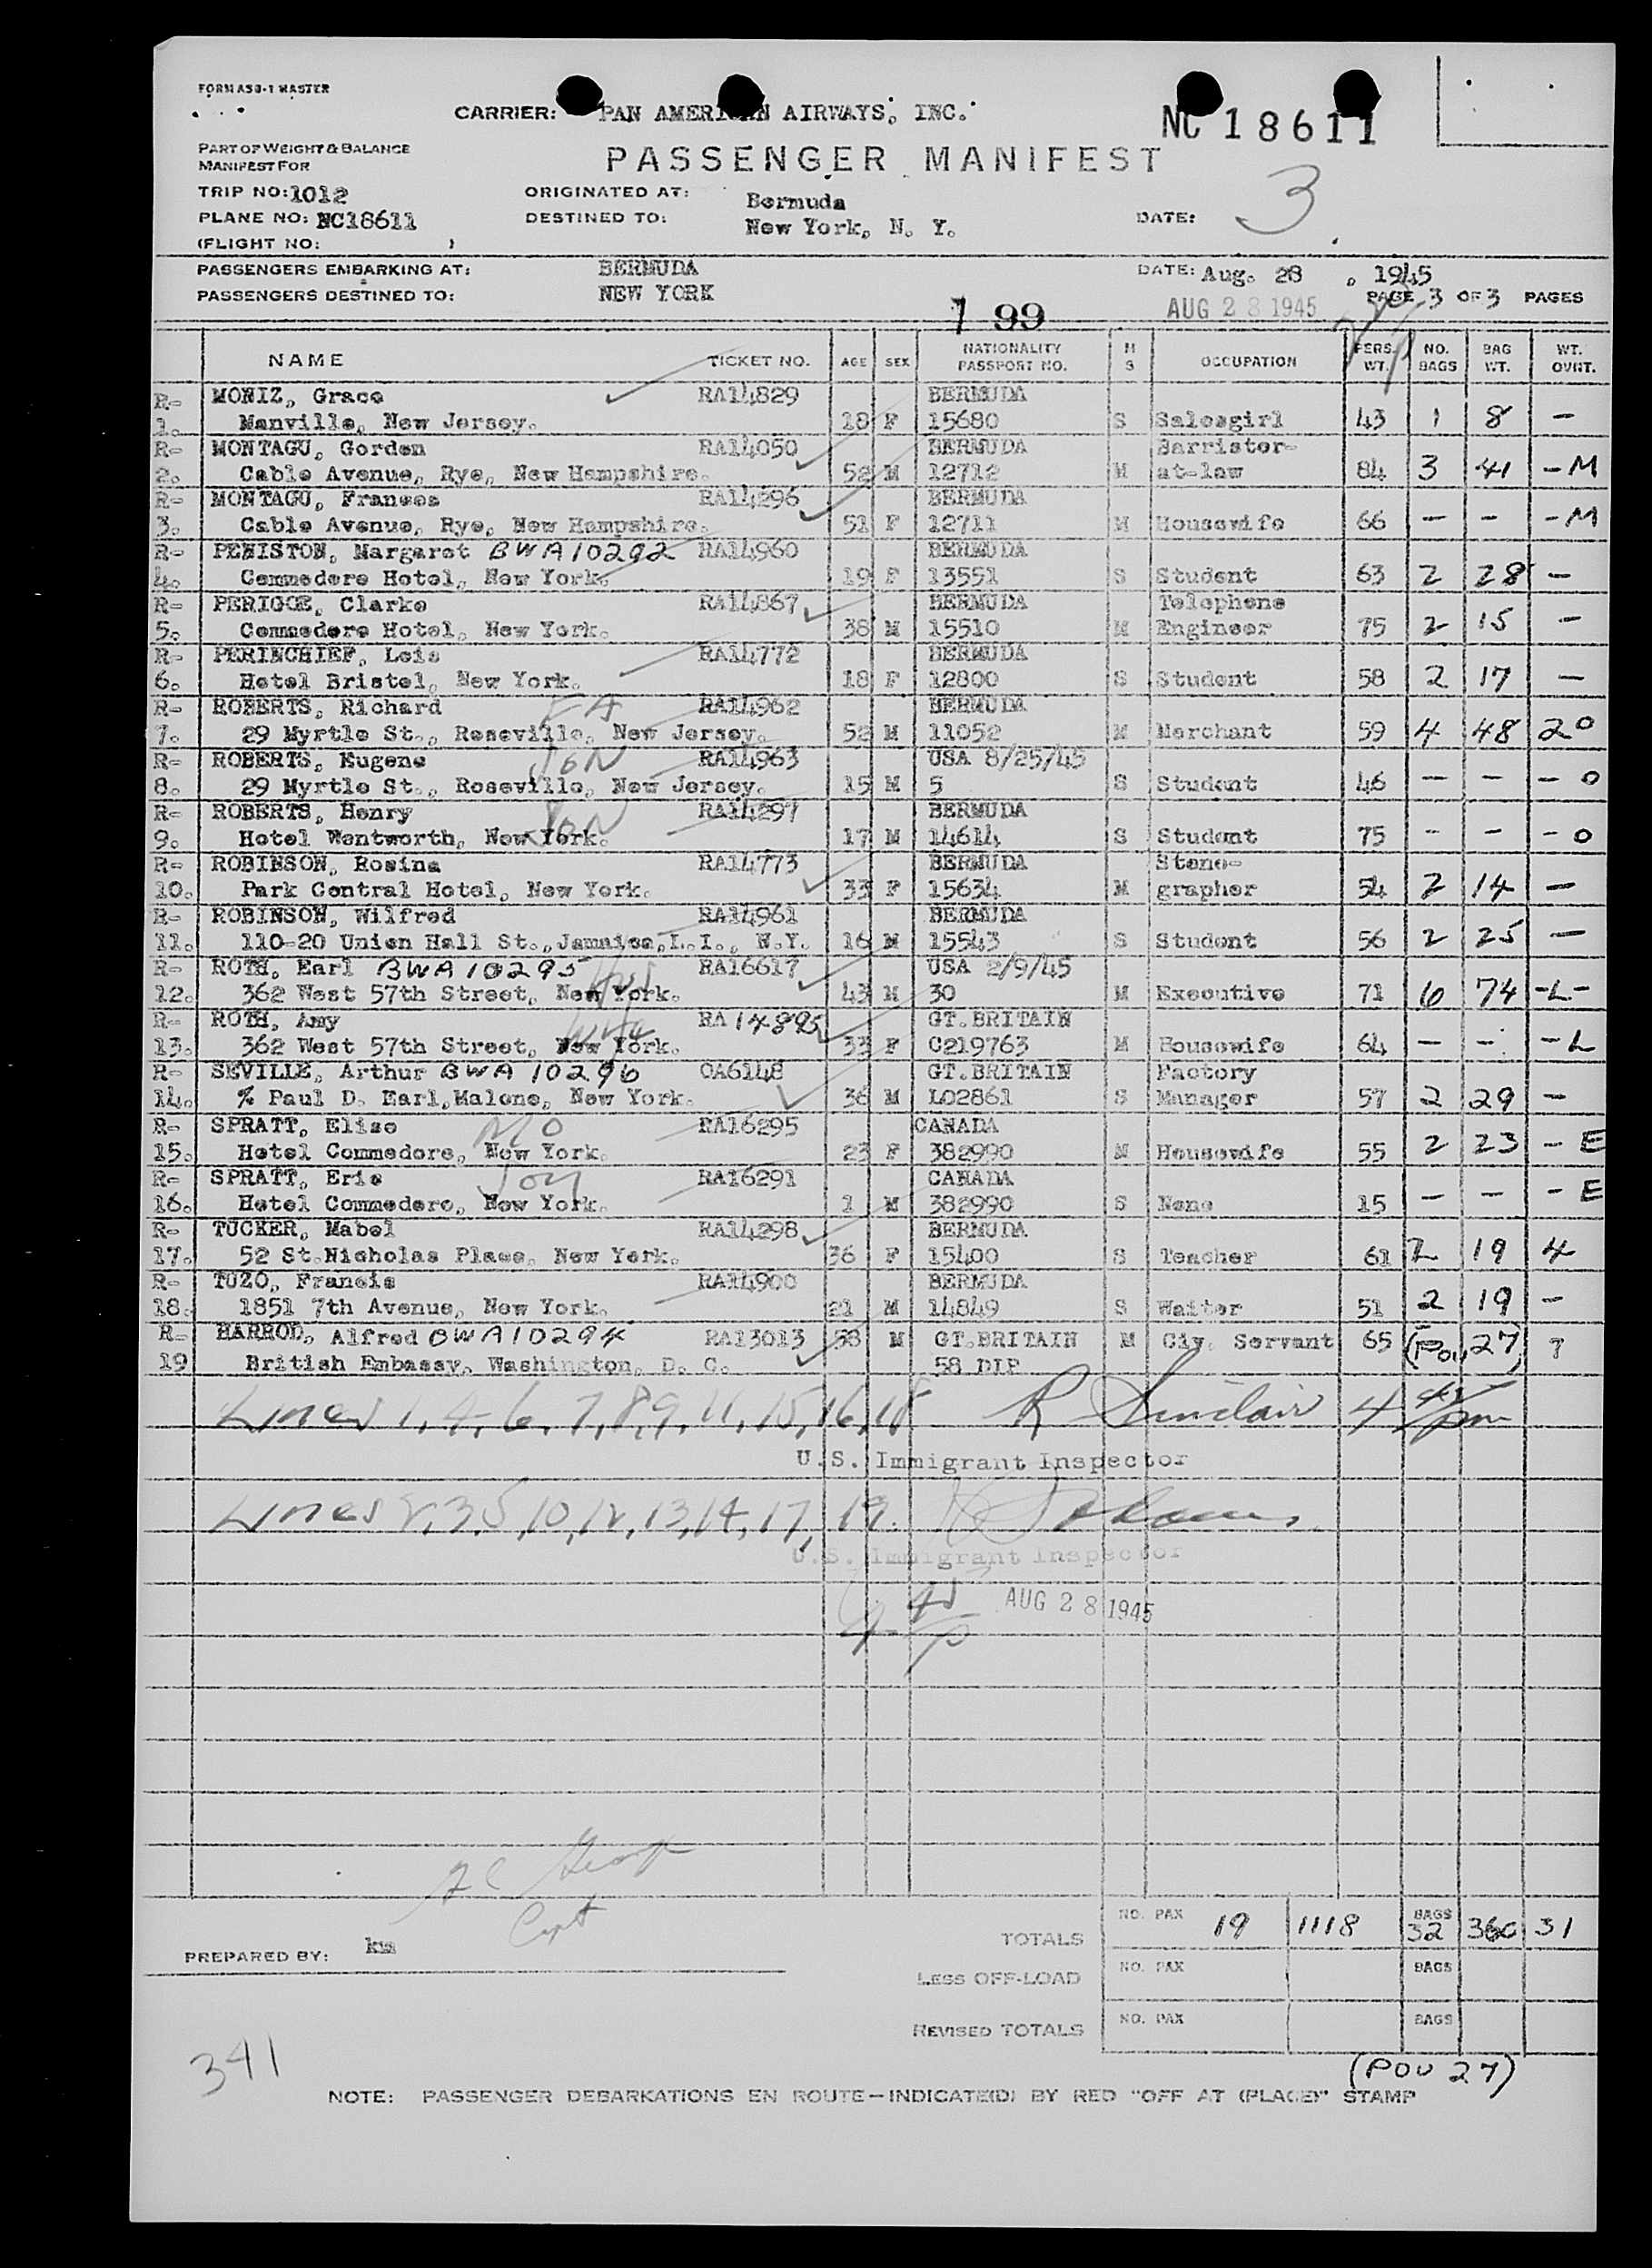 FORM ASB-1 MASTER
CARRIER: PAN AMERICAN AIRWAYS, INC.
NC 18611
PART OF WEIGHT & BALANCE
MANIFEST FOR
PASSENGER MANIFEST
TRIP NO: 1012 ORIGINATED AT: Bermuda 3
PLANE NO: NC18611 DESTINED TO: New York, N. Y. DATE:
(FLIGHT NO: )
PASSENGERS EMBARKING AT: BERMUDA DATE: Aug. 28, 1945
PASSENGERS DESTINED TO: NEW YORK PAGE 3 OF 3 PAGES
199 AUG 28 1945
NAME TICKET NO. AGE SEX NATIONALITY PASSPORT NO. M S OCCUPATION PERS. WT. NO. BAGS BAG WT. WT. OVHT.
R- MONIZ, Grace RA14829 BERMUDA
1. Manville, New Jersey. 18 F 15680 S Salesgirl 43 1 8 -
R- MONTAGU, Gorden RA14050 BERMUDA Barrister-
2. Cable Avenue, Rye, New Hampshire. 52 M 12712 M at-law 84 3 41 - M
R- MONTAGU, Frances RA14296 BERMUDA
3. Cable Avenue, Rye, New Hampshire. 51 F 12711 M Housewife 66 - - - M
R- PENISTON, Margaret BWA10292 RA14960 BERMUDA
4. Commodore Hotel, New York. 19 F 13551 S Student 63 2 28 -
R- PERIGOE, Clarke RA14867 BERMUDA Telephone
5. Commodore Hotel, New York. 38 M 15510 M Engineer 75 2 15 -
R- PERINCHIEF, Lois RA14772 BERMUDA
6. Hotel Bristol, New York. 18 F 12800 S Student 58 2 17 -
R- ROBERTS, Richard FA RA14962 BERMUDA
7. 29 Myrtle St., Roseville, New Jersey. 52 M 11052 M Merchant 59 4 48 20
R- ROBERTS, Eugene SON RA14963 USA 8/25/45
8. 29 Myrtle St., Roseville, New Jersey. 15 M 5 S Student 46 - - - 0
R- ROBERTS, Henry SON RA14297 BERMUDA
9. Hotel Wentworth, New York. 17 M 14614 S Student 75 - - - 0
R- ROBINSON, Rosina RA14773 BERMUDA Steno-
10. Park Central Hotel, New York. 33 F 15634 M grapher 54 2 14 -
R- ROBINSON, Wilfred RA14961 BERMUDA
11. 110-20 Union Hall St., Jamaica, L.I., N.Y. 16 M 15543 S Student 56 2 25 -
R- ROTH, Earl BWA10295 RA16617 USA 2/9/45
12. 362 West 57th Street, New York. 43 M 30 M Executive 71 6 74 -L-
R- ROTH, Amy wife RA 14895 GT. BRITAIN
13. 362 West 57th Street, New York. 33 F C219763 M Housewife 64 - - - L
R- SEVILLE, Arthur BWA 10296 CA6148 GT. BRITAIN Factory
14. % Paul D. Earl, Malone, New York. 36 M LO2861 S Manager 57 2 29 -
R- SPRATT, Elise MO RA16295 CANADA
15. Hotel Commodore, New York. 23 F 382990 M Housewife 55 2 23 - E
R- SPRATT, Eric Son RA16291 CANADA
16. Hotel Commodore, New York. 1 M 382990 S None 15 - - - E
R- TUCKER, Mabel RA14298 BERMUDA
17. 52 St. Nicholas Place, New York. 36 F 15400 S Teacher 61 2 19 4
R- TUZO, Francis RA14900 BERMUDA
18. 1851 7th Avenue, New York. 21 M 14849 S Waiter 51 2 19 -
R- HARROD, Alfred BWA10294 RA13013 58 M GT. BRITAIN M Civ. Servant 65 (Pou 27) 7
19 British Embassy, Washington, D. C. 58 DIP
Lines 1, 4, 6, 7, 8, 9, 11, 15, 16, 18 R Sinclair 4 45/pm
U.S. Immigrant Inspector
Lines 2, 3, 5, 10, 12, 13, 14, 17, 19.
U.S. Immigrant Inspector
AUG 28 1945
Capt
TOTALS NO. PAX 19 1118 BAGS 32 360 31
PREPARED BY: km
LESS OFF-LOAD NO. PAX BAGS
REVISED TOTALS NO. PAX BAGS
341
(POU 27)
NOTE: PASSENGER DEBARKATIONS EN ROUTE—INDICATE(D) BY RED "OFF AT (PLACE)" STAMP